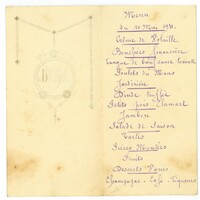 Menu
du 10 Mai 1931.
Crème de Volaille
Bouchées financière
Langue de bœuf sauce tomate
Poulets du Mans
Jardinière
Dinde truffée
Petits pois Clamart
Jambon
Salade de Saison
Tartes
Pièces Montées
Fruits
Desserts Variés
Champagne - Café - Liqueurs